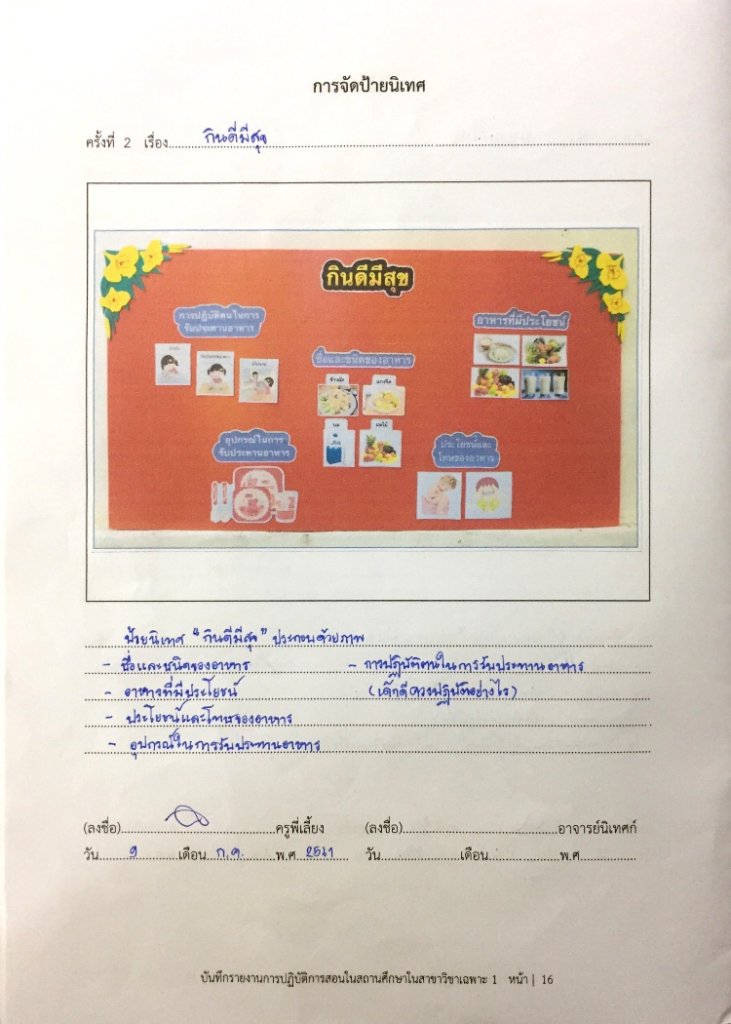 การจัดป้ายนิเทศ
ครั้งที่ 2 เรื่อง กินดีมีสุข
กินดีมีสุข
การปฏิบัติตนในการ
รับประทานอาหาร
อาหารที่มีประโยชน์
ชื่อและชนิดของอาหาร
ข้าวผัด แกงจืด
นม ผลไม้
อุปกรณ์ในการ
รับประทานอาหาร
ประโยชน์และ
โทษของอาหาร
ป้ายนิเทศ "กินดีมีสุข" ประกอบด้วยภาพ
- ชื่อและชนิดของอาหาร - การปฏิบัติตนในการรับประทานอาหาร
- อาหารที่มีประโยชน์ (เด็กดีควรปฏิบัติอย่างไร)
- ประโยชน์และโทษของอาหาร
- อุปกรณ์ในการรับประทานอาหาร
(ลงชื่อ) ครูพี่เลี้ยง (ลงชื่อ) อาจารย์นิเทศก์
วัน 9 เดือน ก.ค. พ.ศ 2561 วัน เดือน พ.ศ
บันทึกรายงานการปฏิบัติการสอนในสถานศึกษาในสาขาวิชาเฉพาะ 1 หน้า | 16